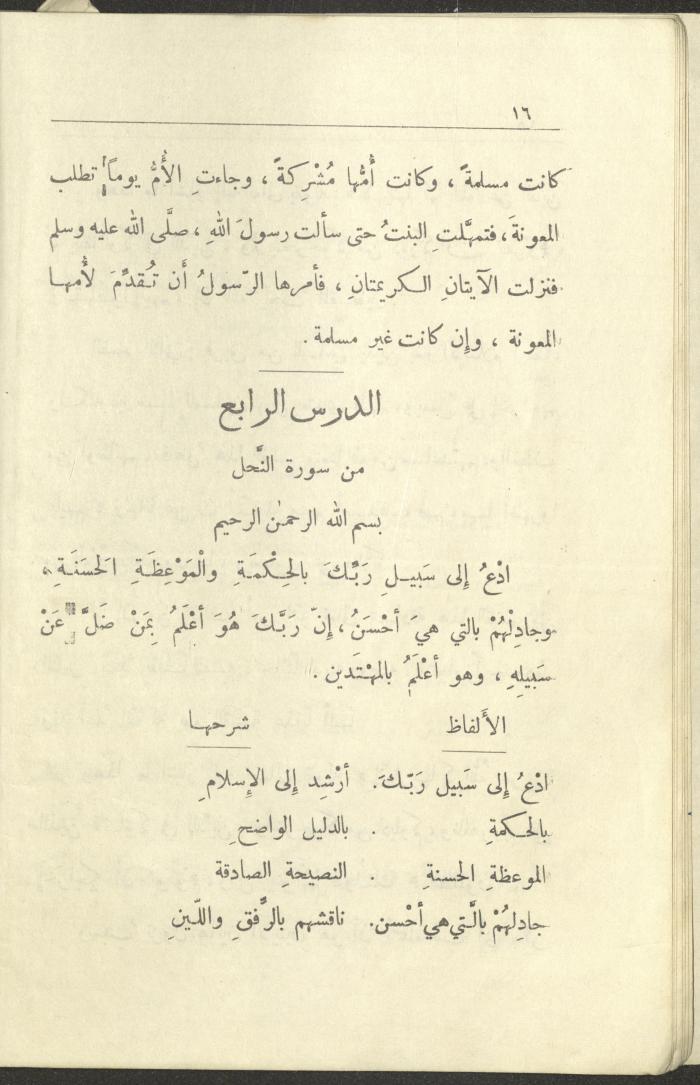 ١٦
كانت مسلمةً ، وكانت أُمُّها مُشْرِكةً ، وجاءتِ الأُمُّ يوماً تطلب
المعونةَ ، فتمهَّلتِ البنتُ حتى سألت رسولَ اللهِ ، صلَّى الله عليه وسلم
فنزلت الآيتانِ الكريمتانِ ، فأمرها الرّسولُ أَن تُقدِّمَ لأُمها
المعونة ، وإِن كانت غير مسلمة .
الدرس الرابع
من سورة النَّحل
بسم الله الرحمٰن الرحيم
ادْعُ إِلى سَبيلِ رَبِّكَ بالحِكْمَةِ والْمَوْعِظَةِ الحَسَنَةِ ،
وجادِلْهُمْ بالتي هيَ أحْسَنُ ، إِنّ رَبَّكَ هُوَ أعْلَمُ بِمَنْ ضَلَّ عَنْ
سَبيلِهِ ، وهو أعْلَمُ بالمهْتَدين .
الأَلفاظ شرحها
ادْعُ إِلى سَبيل رَبّكَ . أرْشِد إِلى الإِسلامِ
بالحكمةِ . بالدليل الواضحِ
الموعظةِ الحسنةِ . النصيحةِ الصادقة
جادِلهُمْ بالَّتي هي أحْسن . ناقشهم بالرِّفقِ واللّينِ